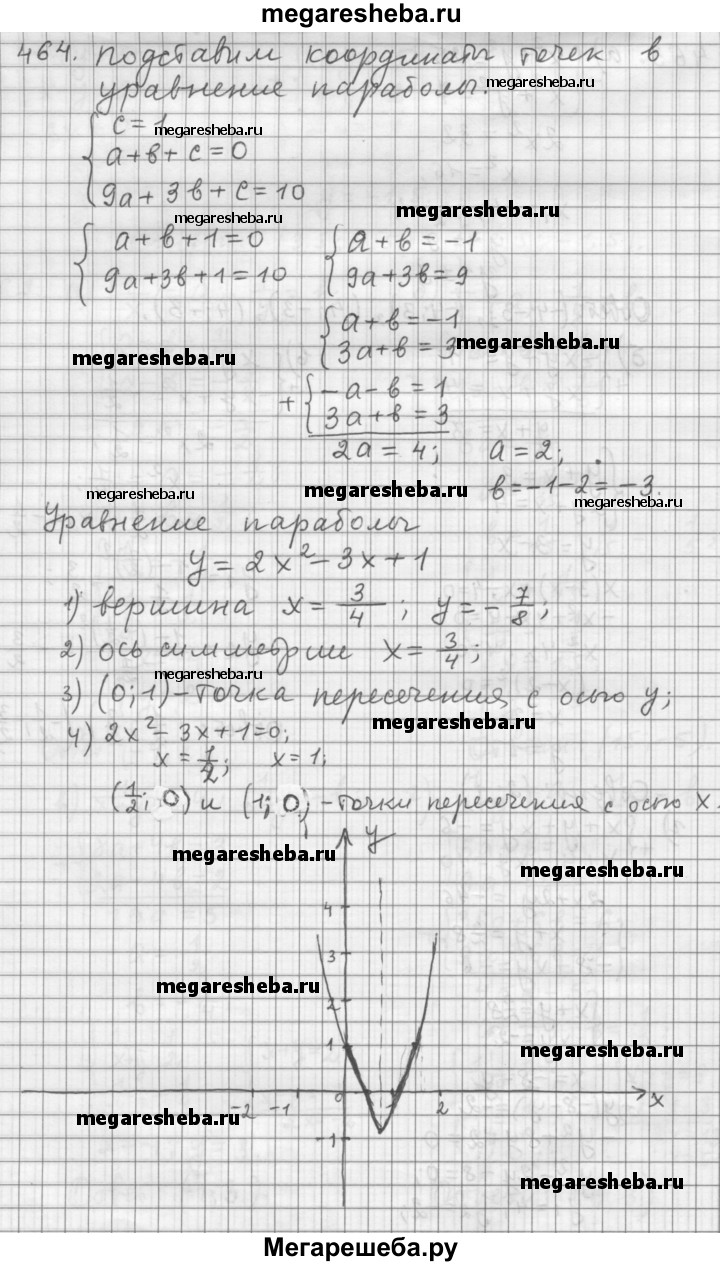 megaresheba.ru
464. подставим координаты точек в
уравнение параболы. megaresheba.ru
{ c = 1 megaresheba.ru
a + в + c = 0
9a + 3в + c = 10
megaresheba.ru megaresheba.ru
{ a + в + 1 = 0 { a + в = -1
9a + 3в + 1 = 10 9a + 3в = 9
{ a + в = -1
megaresheba.ru 3a + в = 3 megaresheba.ru
+ { -a - в = 1
3a + в = 3
2a = 4; a = 2;
megaresheba.ru megaresheba.ru в = -1 - 2 = -3. megaresheba.ru
Уравнение параболы
y = 2x² - 3x + 1
1) вершина x = 3/4; y = -7/8;
2) ось симметрии x = 3/4;
megaresheba.ru
3) (0; 1) - точка пересечения с осью y;
megaresheba.ru
4) 2x² - 3x + 1 = 0;
x = 1/2; x = 1;
(1/2; 0) и (1; 0) - точки пересечения с осью x.
y
megaresheba.ru
megaresheba.ru
4
3
megaresheba.ru
2
1
megaresheba.ru
-2 -1 0 1 2 x
megaresheba.ru
-1
megaresheba.ru
Мегарешеба.ру